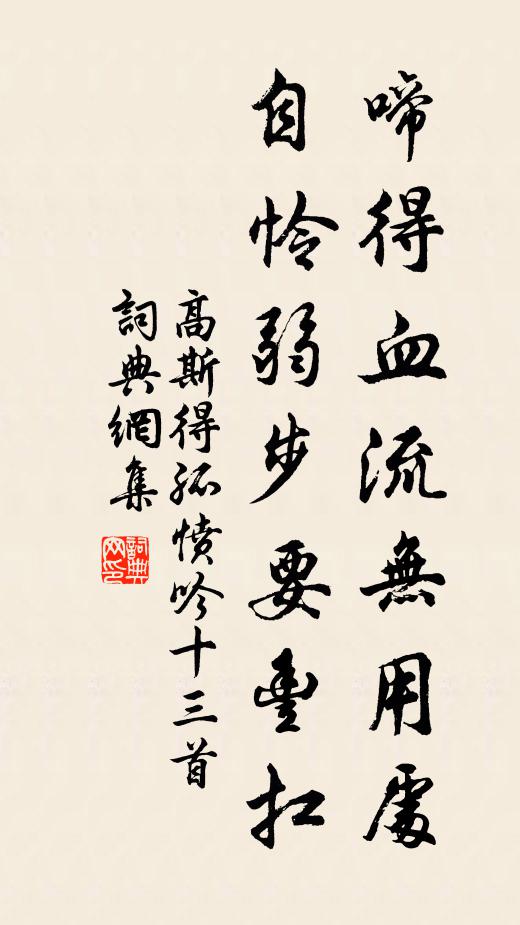 啼得血流無用處
自怜弱步要豐扛
高斯得孤憤吟十三首
詞典網集
詞典网印